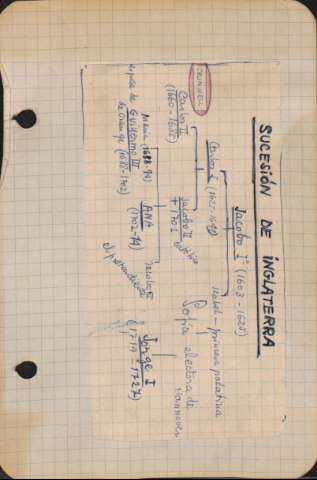 SUCESIÓN DE INGLATERRA
Jacobo Iº (1603-1625)
Carlos I (1625-1649)
Isabel - princesa palatina
CROMWELL
Carlos II
(1660-1685)
Jacobo II
† 1701
Sofía electora de
Hannover
María (1688-94)
esposa de GUILLERMO III
de Orange (1688-1702)
ANA
(1702-14)
Jacobo
Jorge I
(1714-1727)